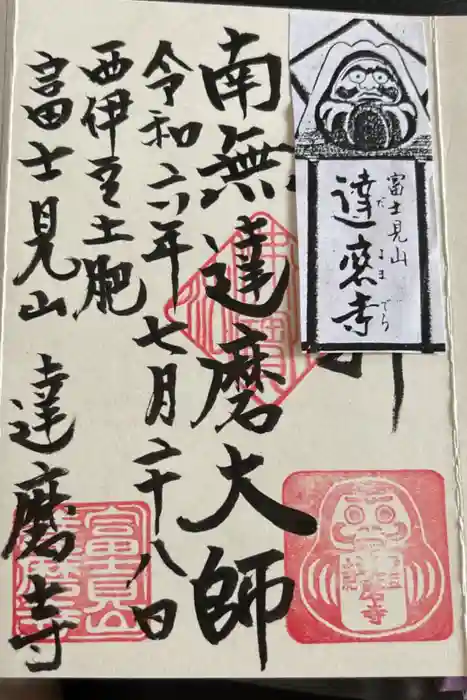 富士見山
だ
るま
でら
達磨寺
南無達磨大師
令和六年七月二十八日
西伊豆土肥
富士見山 達磨寺
富士見山
達磨寺